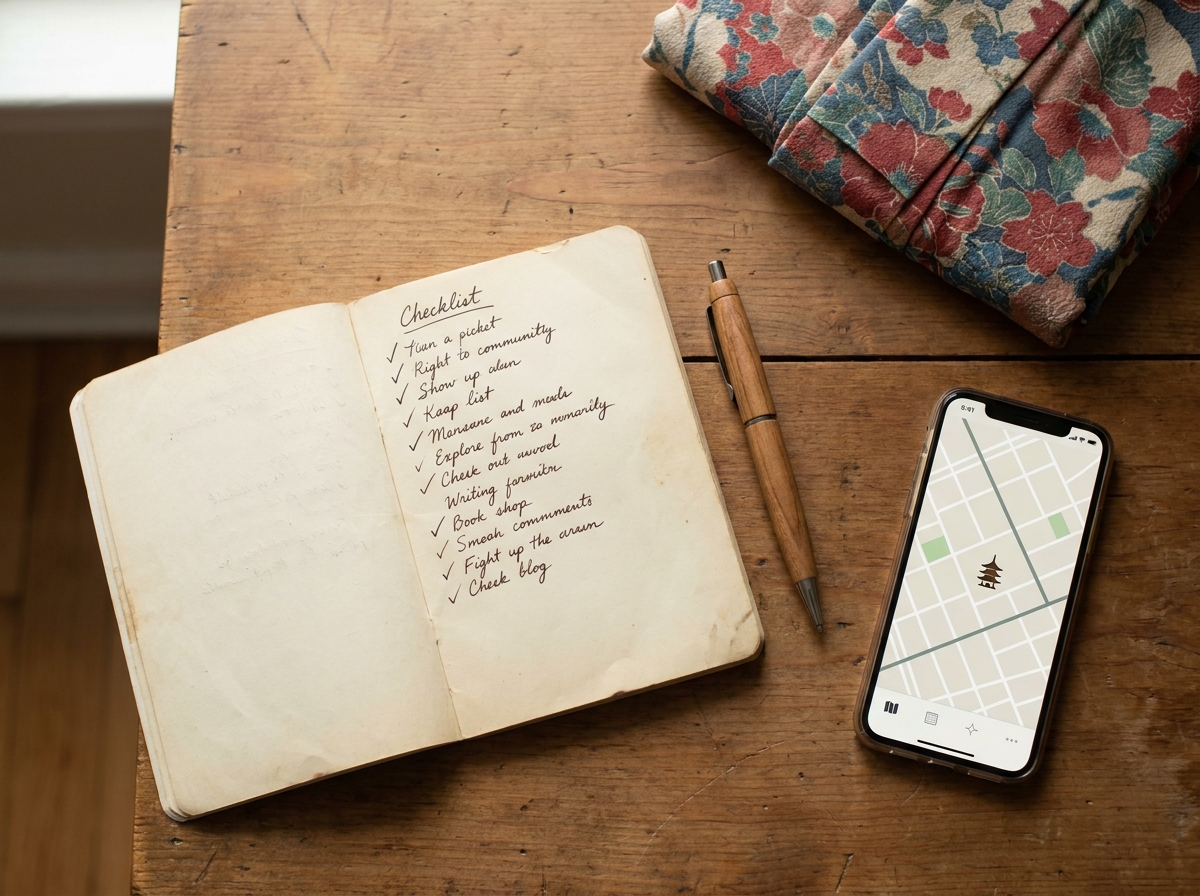 Checklist
a picket
Right to community
Show up alean
Kaap list
Mansane and meds
Explore from za nomarily
Check out
Writing
Book shop
Smeah commments
Fight up the
Check blog